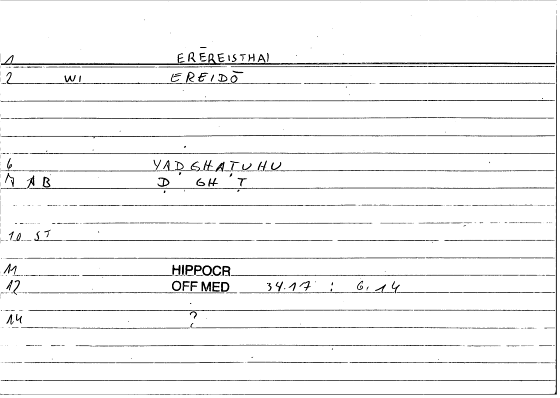 1 ERĒREISTHAI
2 WI EREIDŌ
6 YAḌGHAṬUHU
7 AB Ḍ GH Ṭ
10 ST
11 HIPPOCR
12 OFF MED 34.17 : 6.14
14 ?